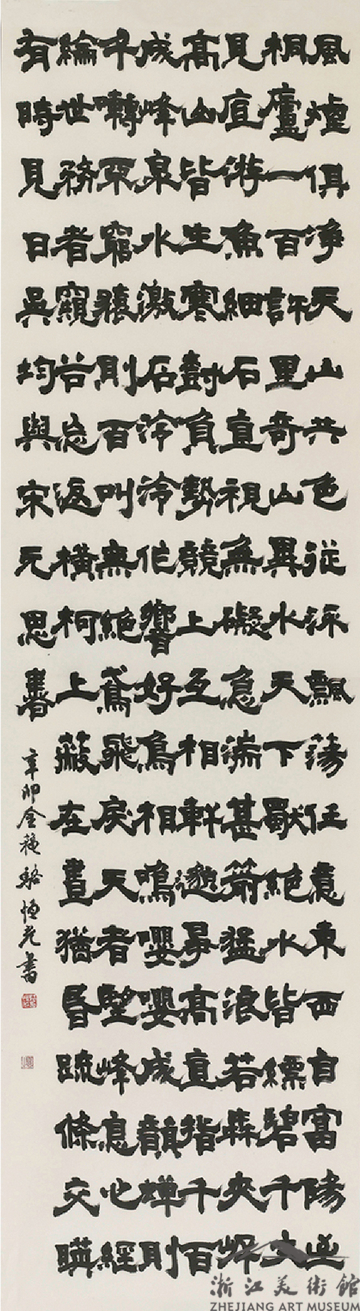 風煙俱淨天山共色從流飄蕩任意東西自富陽至
桐廬一百許里奇山異水天下獨絕水皆縹碧千丈
見底游魚細石直視無礙急湍甚箭猛浪若奔夾岸
高山皆生寒樹負勢競上互相軒邈爭高直指千百
成峰泉水激石泠泠作響好鳥相鳴嚶嚶成韻蟬則
千囀不窮猿則百叫無絕鳶飛戾天者望峰息心經
綸世務者窺谷忘返橫柯上蔽在晝猶昏疏條交映
有時見日吳均與宋元思書
辛卯金秋駱恒光書
浙江美術館
ZHEJIANG ART MUSEUM